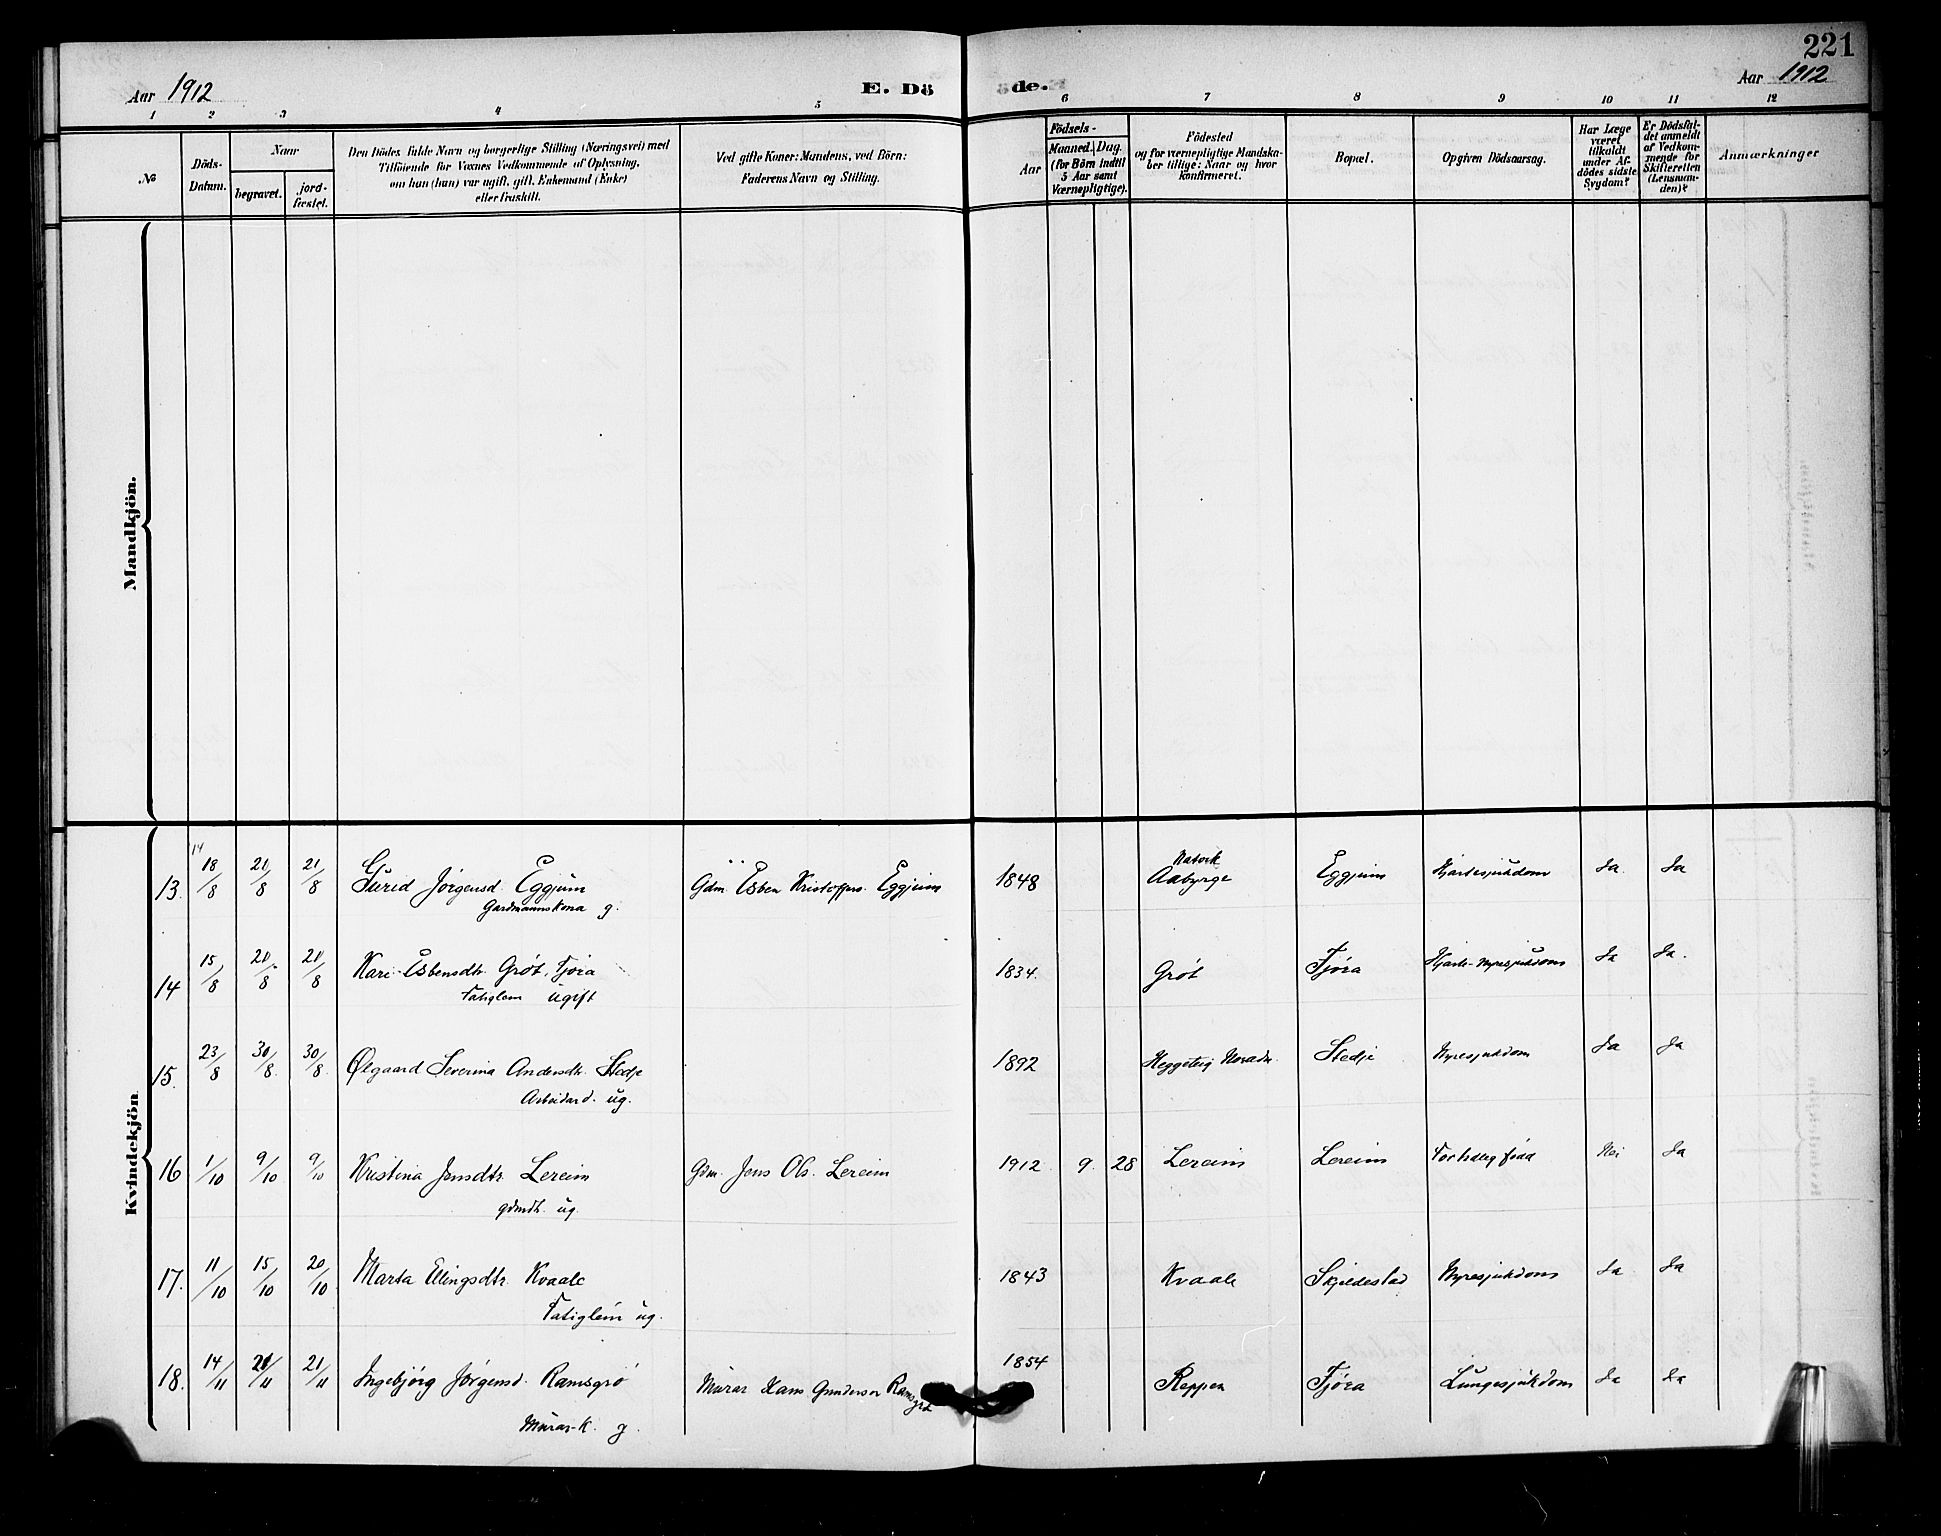 221
Aar 1912
E. Döde.
Aar 1912
1 2 3 4 5 6 7 8 9 10 11 12
No
Döds-Datum.
Naar
begravet.
jord-fæstet.
Den Dödes fulde Navn og borgerlige Stilling (Næringsvei) med
Tilföiende for Voxnes Vedkommende af Oplysning,
om hun (han) var ugift, gift, Enkemand (Enke)
eller fraskilt.
Ved gifte Koner: Mandens, ved Börn:
Faderens Navn og Stilling.
Aar
Födsels-
Maaned. Dag.
(for Börn indtil
5 Aar samt
Værnepligtige).
Födested
og for værnepligtige Mandska-
ber tillige: Naar og hvor
konfirmeret.
Bopæl.
Opgiven Dödsaarsag.
Har Læge
været
tilkaldt
under Af-
dödes sidste
Sygdom?
Er Dödsfal-
det anmeldt
af Vedkom-
mende for
Skifteretten
(Lensman-
den)?
Anmærkninger
Mandkjön.
Kvindekjön
13. 18/8 21/8 21/8 Gurid Jörgensd. Eggjum Gdm. Esben Kristoffers. Eggjum 1848 Aabyrge Eggjum Hjartesjukdom Ja Ja
Gardmannskona g.
14 15/8 21/8 21/8 Kari Esbensdtr. Gröt, Fjöra 1834. Gröt Fjöra Hjarte-nyresjukdom Ja Ja.
Fatiglem ugift
15. 23/8 30/8 30/8 Ølgaard Severina Andersdtr. Stedje 1892 Heggeteig Stedje Nyresjukdom Ja Ja
Arbeidard. ug.
16 1/10 9/10 9/10 Kristina Jensdtr. Lereim Gdm. Jens Ols. Lereim 1912 9. 28 Lereim Lereim Fortidleg född Nei Ja
gdmdtr. ug.
17. 11/10 15/10 20/10 Marta Ellingsdtr. Kvaale 1843 Kvaale Skjeldestad Nyresjukdom Ja Ja
Fatiglem ug.
18. 14/11 21/11 21/11 Ingebjörg Jörgensd. Ramsgrö Murar Hans Gunderson Ramsgrö 1854 Reppen Fjöra Lungesjukdom Ja Ja
Murar-k. g.